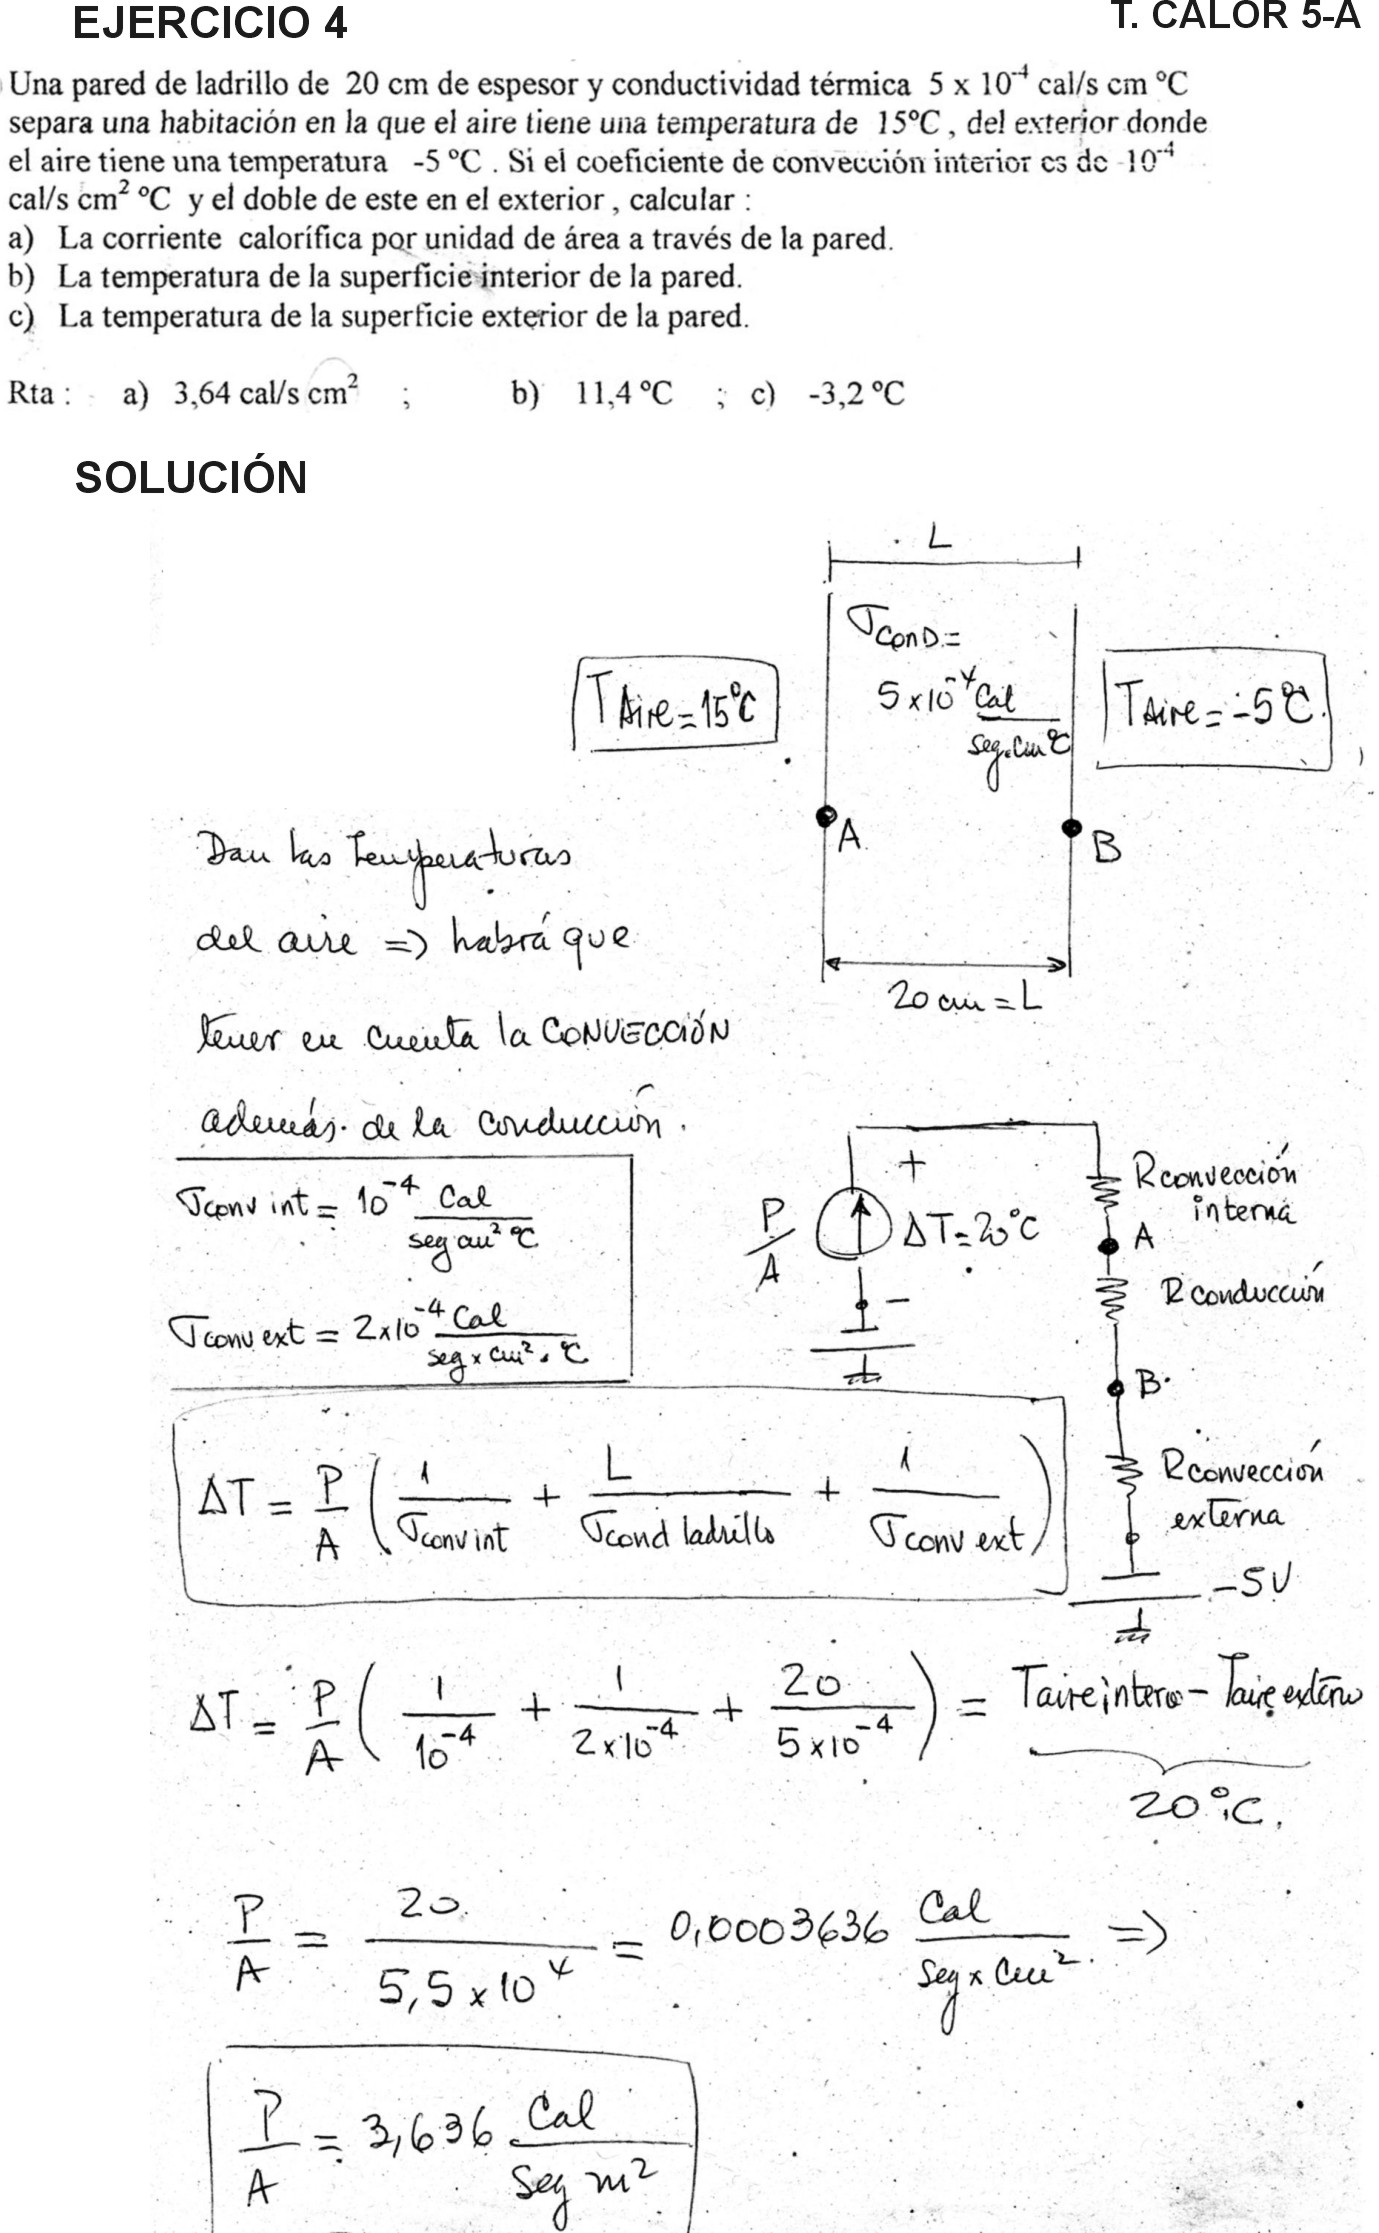 EJERCICIO 4
T. CALOR 5-A
Una pared de ladrillo de 20 cm de espesor y conductividad térmica 5 x 10⁻⁴ cal/s cm ºC
separa una habitación en la que el aire tiene una temperatura de 15ºC , del exterior donde
el aire tiene una temperatura -5 ºC . Si el coeficiente de convección interior es de 10⁻⁴
cal/s cm² ºC y el doble de este en el exterior , calcular :
a) La corriente calorífica por unidad de área a través de la pared.
b) La temperatura de la superficie interior de la pared.
c) La temperatura de la superficie exterior de la pared.
Rta : a) 3,64 cal/s cm² ; b) 11,4 ºC ; c) -3,2 ºC
SOLUCIÓN
L
σCOND.=
5×10⁻⁴ Cal / seg.cm ºC
TAire=15ºC
TAire=-5ºC.
A
B
20 cm = L
Dan las Temperaturas
del aire => habrá que
tener en cuenta la CONVECCIÓN
además de la conducción.
σconv int = 10⁻⁴ Cal / seg cm² ºC
σconv ext = 2×10⁻⁴ Cal / seg × cm² . ºC
P/A
+
ΔT=20ºC
-
Rconvección
interna
A
R conducción
B
Rconvección
externa
-5V
ΔT = P/A ( 1/σconv int + L/σcond ladrillo + 1/σconv ext )
ΔT = P/A ( 1/10⁻⁴ + 1/2×10⁻⁴ + 20/5×10⁻⁴ ) = Taire interno - Taire externo
20ºC.
P/A = 20 / 5,5×10⁴ = 0,0003636 Cal / seg × cm² =>
P/A = 3,636 Cal / seg m²